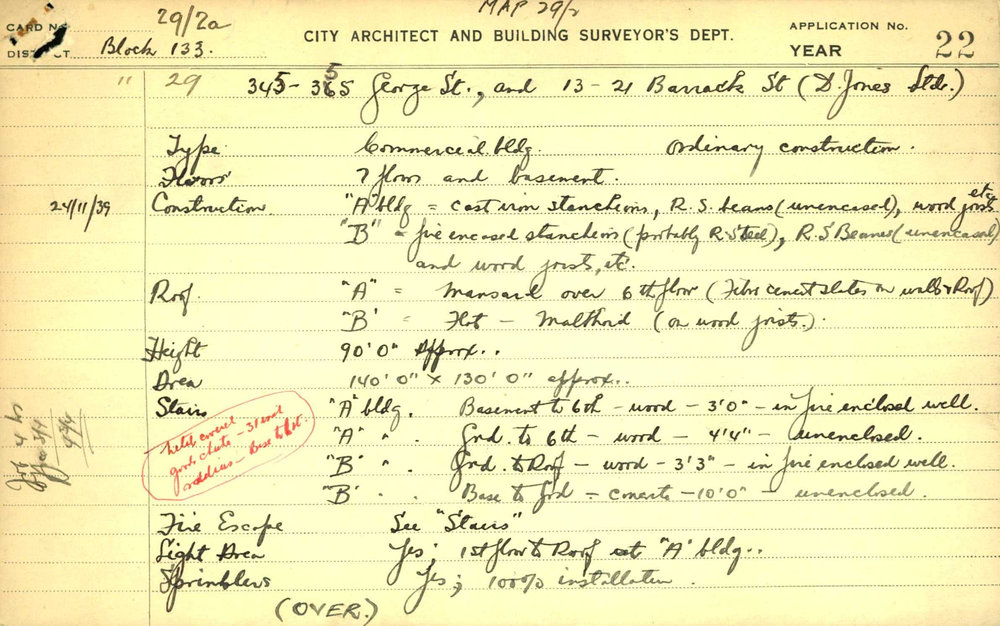 29/2a MAP 29/2
CARD No.
CITY ARCHITECT AND BUILDING SURVEYOR'S DEPT.
APPLICATION No.
DISTRICT Block 133.
YEAR 22
" 29 345-365 5 George St., and 13-21 Barrack St (D. Jones Ltd.)
Type Commercial bldg. Ordinary construction.
Floors 7 floors and basement.
24/11/39 Construction "A" bldg = cast iron stancheons, R.S. beams (unencased), wood joists etc
"B" = fire encased stancheons (probably R. Steel), R.S Beams (unencased)
and wood joists, etc.
Roof. "A" = Mansard over 6th floor (Fibro cement slates on walls & Roof)
"B" = Flat - Malthoid (on wood joists.)
Height 90'0" approx..
Area 140'0" x 130'0" approx..
Stairs "A" bldg. Basement to 6th - wood - 3'0" - in fire enclosed well.
"A" " . Grd. to 6th - wood - 4'4" - unenclosed.
"B" " . Grd. to Roof - wood - 3'3" - in fire enclosed well.
"B" . . Base to Grd - concrete - 10'0" - unenclosed.
metal covered
goods chute -
- Base to 1st.
Fire Escape See "Stairs"
Light Area Yes; 1st floor to Roof at "A" bldg..
Sprinklers Yes; 100% installation.
(OVER.)